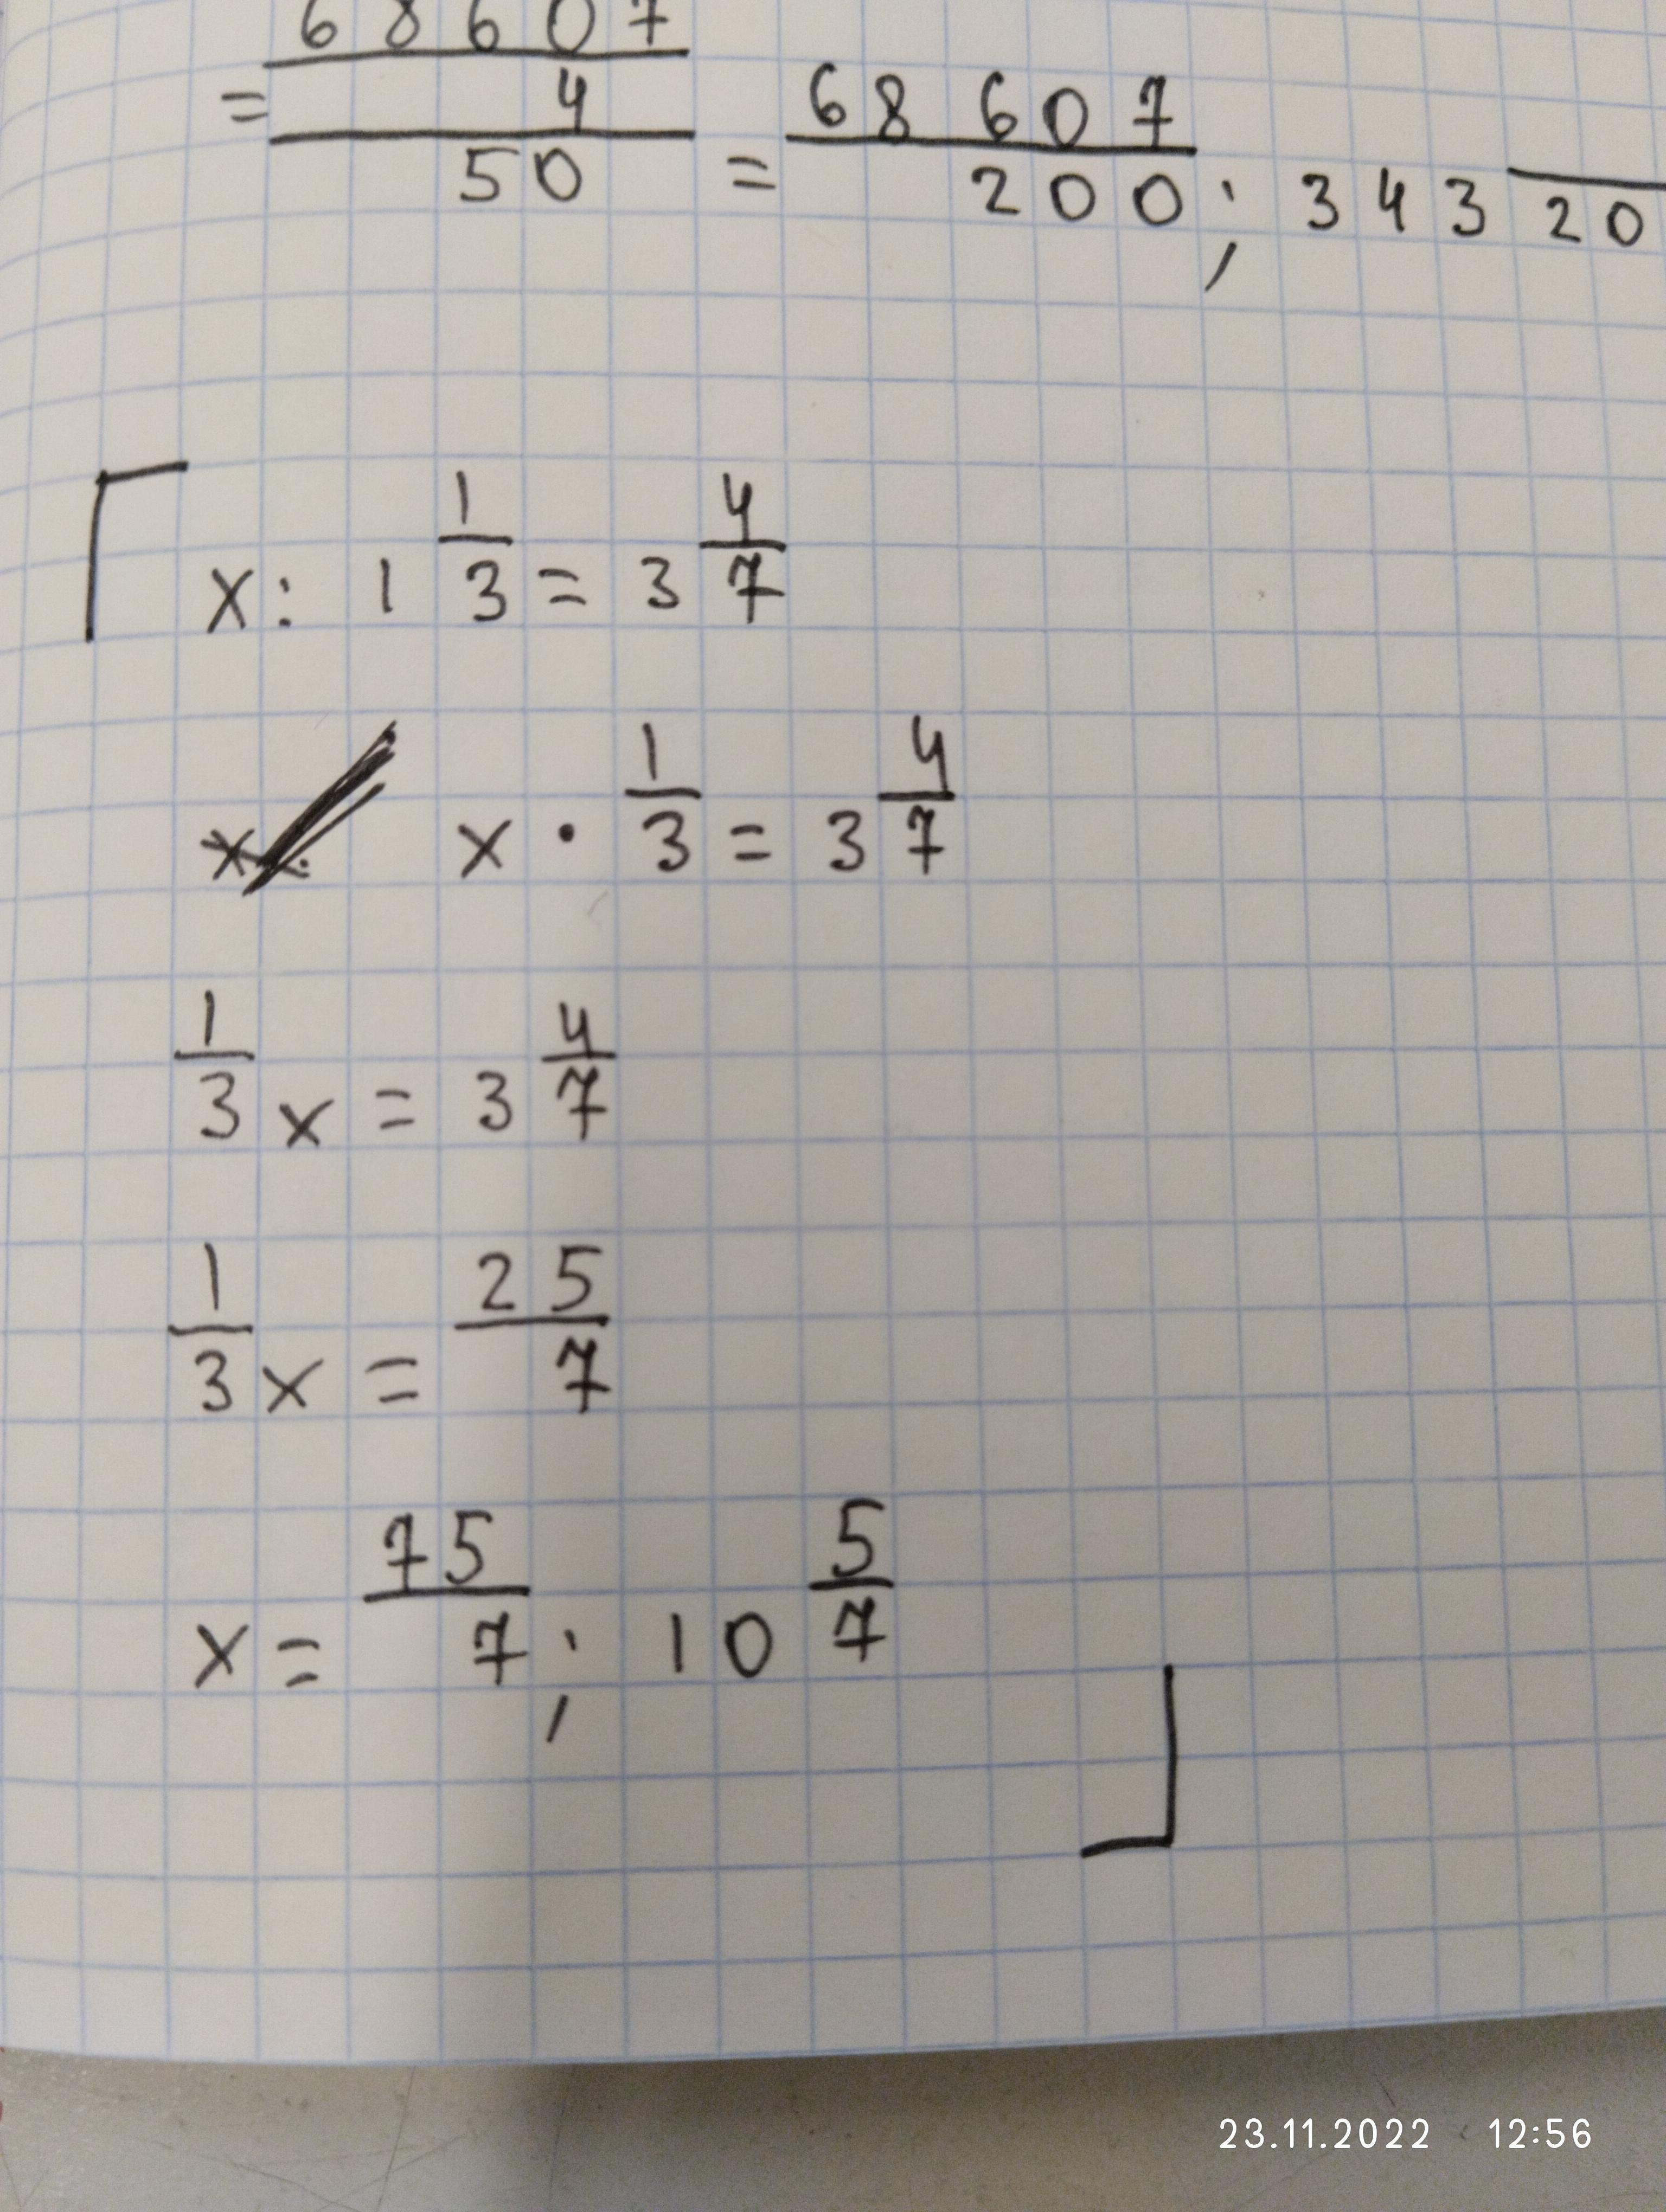 = 68607/4/50 = 68 607/200 ; 343 /20
x : 1 1/3 = 3 4/7
x · 1/3 = 3 4/7
1/3 x = 3 4/7
1/3 x = 25/7
x = 75/7 ; 10 5/7
23.11.2022 12:56